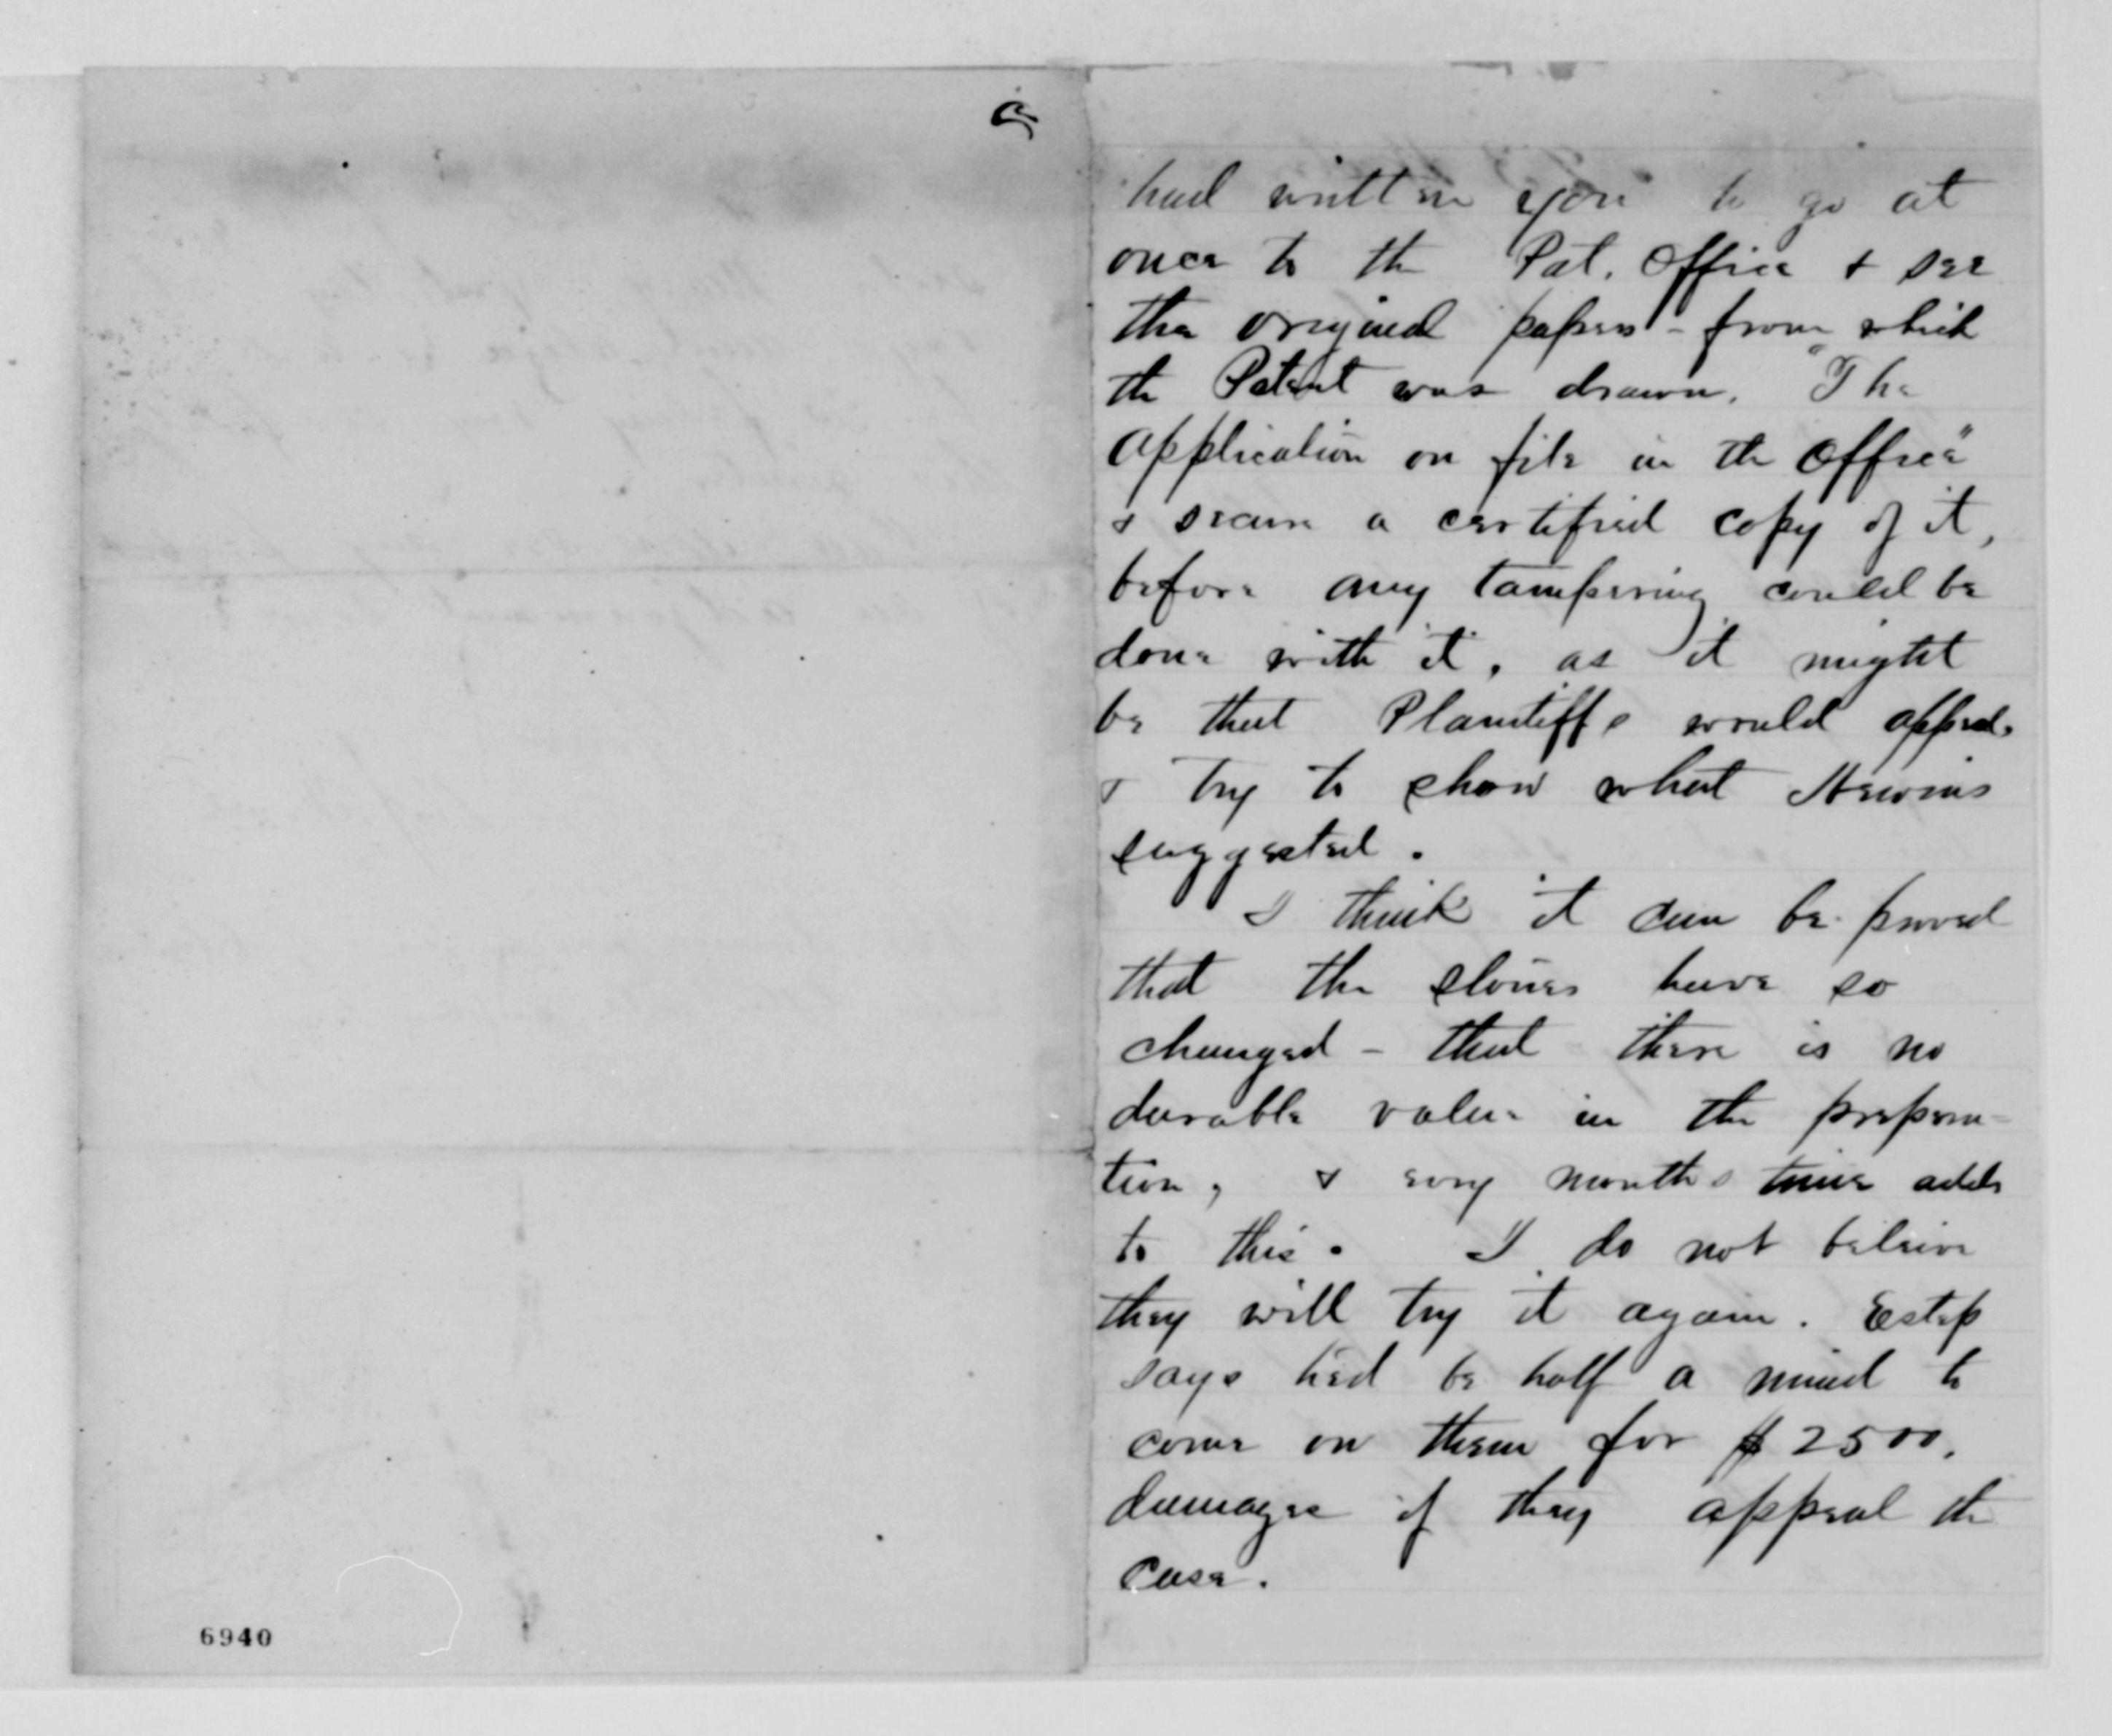 had written you to go at
once to the Pat. Office & see
the original papers - from which
the Patent was drawn. "The
Application on file in the Office"
& secure a certified copy of it,
before any tampering could be
done with it, as it might
be that Plaintiffs would appeal.
& try to show what
suggested.
I think it can be proved
that the stones have so
changed - that there is no
durable value in the prepara-
tion, & every months time adds
to this. I do not beleive
they will try it again. Estep
says he'd be half a mind to
come on them for $2500.
damages if they appeal the
case.
6940